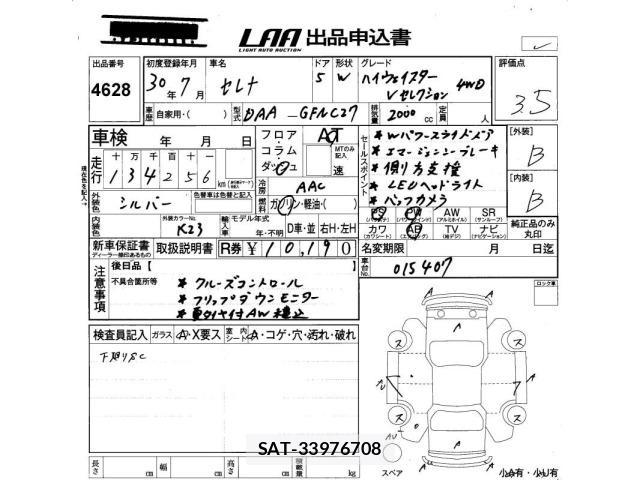 LAA 出品申込書
LIGHT AUTO AUCTION
出品番号 初度登録年月 車名 ドア 形状 グレード 評価点
4628 30年 7月 セレナ 5 W ハイウェイスター Vセレクション 4WD 3.5
車歴 自家用・( ) 型式 DAA - GFNC27 排気量 2000 cc 定員 人
車検 年 月 日 フロア コラム ダッシュ AT MTのみ記入 速
セールスポイント
* Wパワースライドドア
* エマージェンシーブレーキ
* 側方支援
* LEDヘッドライト
* バックカメラ
[外装] B
[内装] B
走行 十 万 千 百 十 一
134256 km
冷房 AAC
現在色を記入
外装色 シルバー 色替車は色替と記入 燃料 ガソリン・軽油・( )
外装カラーNo. K23 輸入車 モデル年式 年・不明 D車・並 右H・左H
PS PW AW SR
(パワステ) (パワーウインド) (アルミホイール) (サンルーフ)
カワ AB TV ナビ
(カワシート) (エアバッグ) (地デジ) (ナビゲーション)
純正品のみ丸印
新車保証書 取扱説明書 R券 ¥10,190
ディーラー捺印あるもの
名変期限 月 日迄
車台No. 015407
注意事項
後日品【 】
不具合箇所等
* クルーズコントロール
* フリップダウンモニター
ロック車
検査員記入 ガラス A・X要ス 室内シート A・コゲ・穴・汚れ・破れ
下廻りSC
A A
ス ス
A
AU A
ス ス
AU
A A
スペア
SAT-33976708
長さ cm 幅 cm 高さ cm 積載量 kg